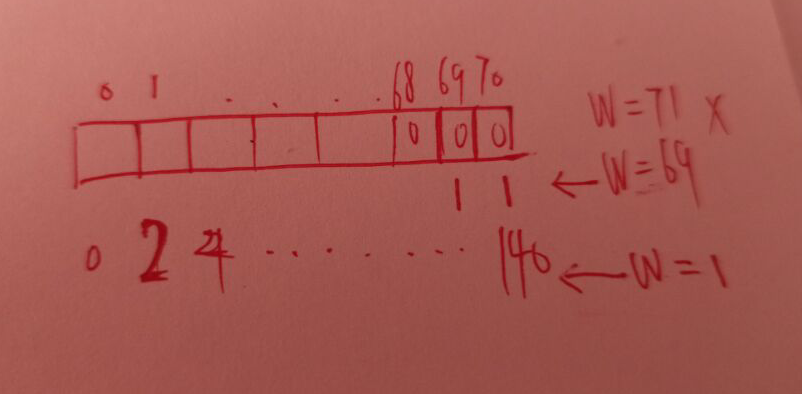 0 1 . . . . 68 69 70
0 0 0 W=71 X
1 1 ← W=69
0 2 4 ........ 140 ← W=1